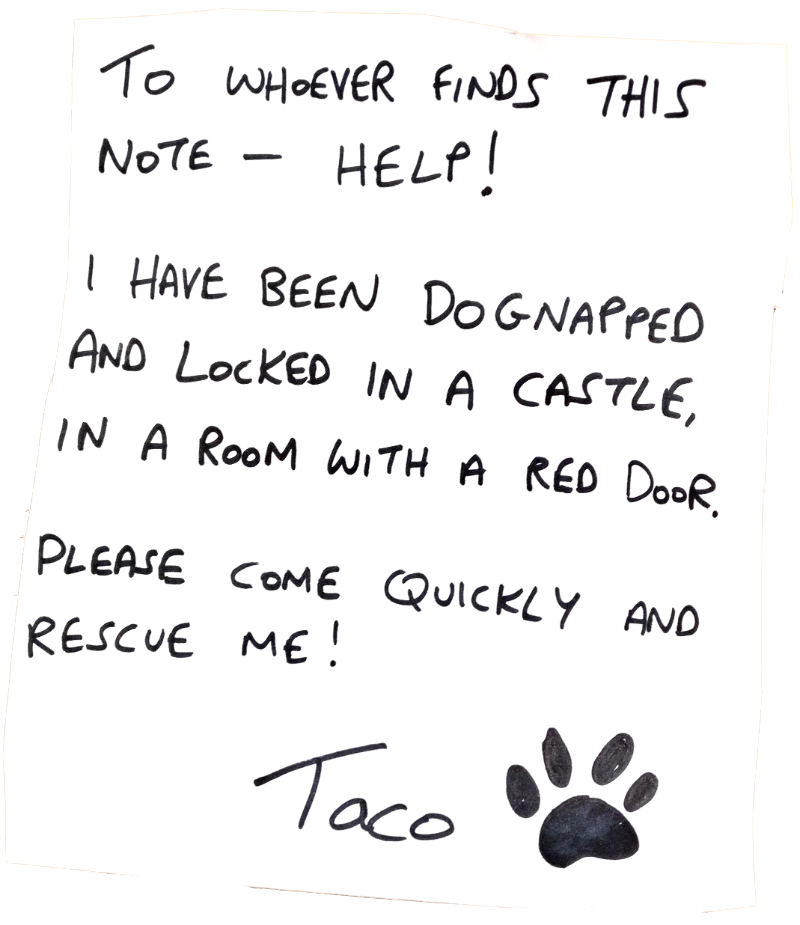 To WHOEVER FINDS THIS
NOTE – HELP!
I HAVE BEEN DOGNAPPED
AND LOCKED IN A CASTLE,
IN A ROOM WITH A RED DOOR.
PLEASE COME QUICKLY AND
RESCUE ME!
Taco